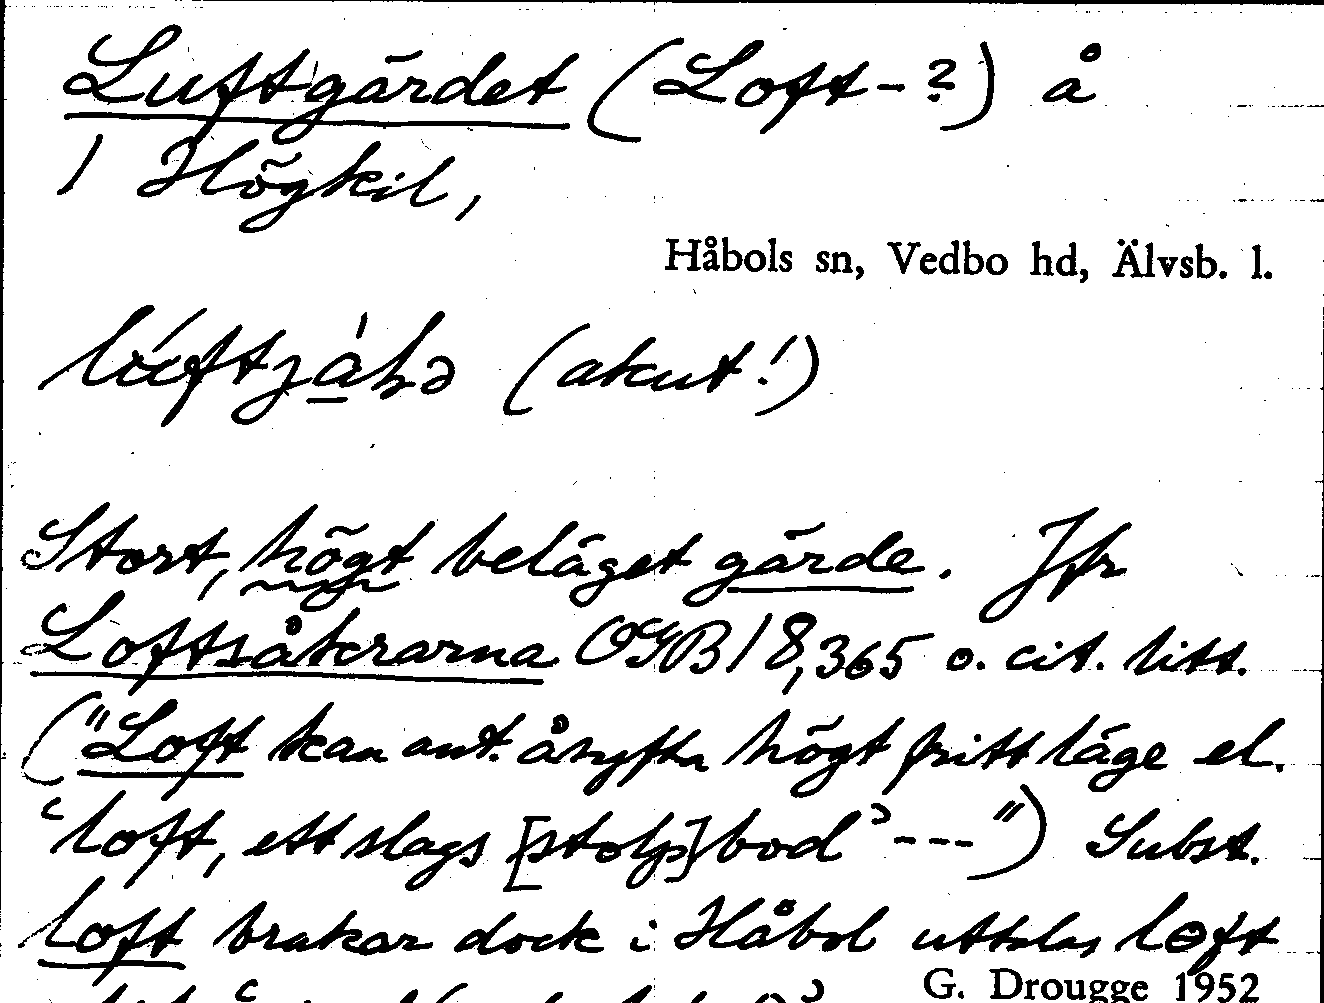 Luftgärdet (Loft-?) å
1 Högkil,
Håbols sn, Vedbo hd, Älvsb. l.
(akut!)
Stort, högt beläget gärde. Jfr
Loftsåkrarna OGB 18,365 o. cit. litt.
("Loft kan ant. åsyfta högt fritt läge el.
'loft, ett slags [stolp]bod' ---") Subst.
loft brukar dock i Håbol uttalas lɵft
G. Drougge 1952